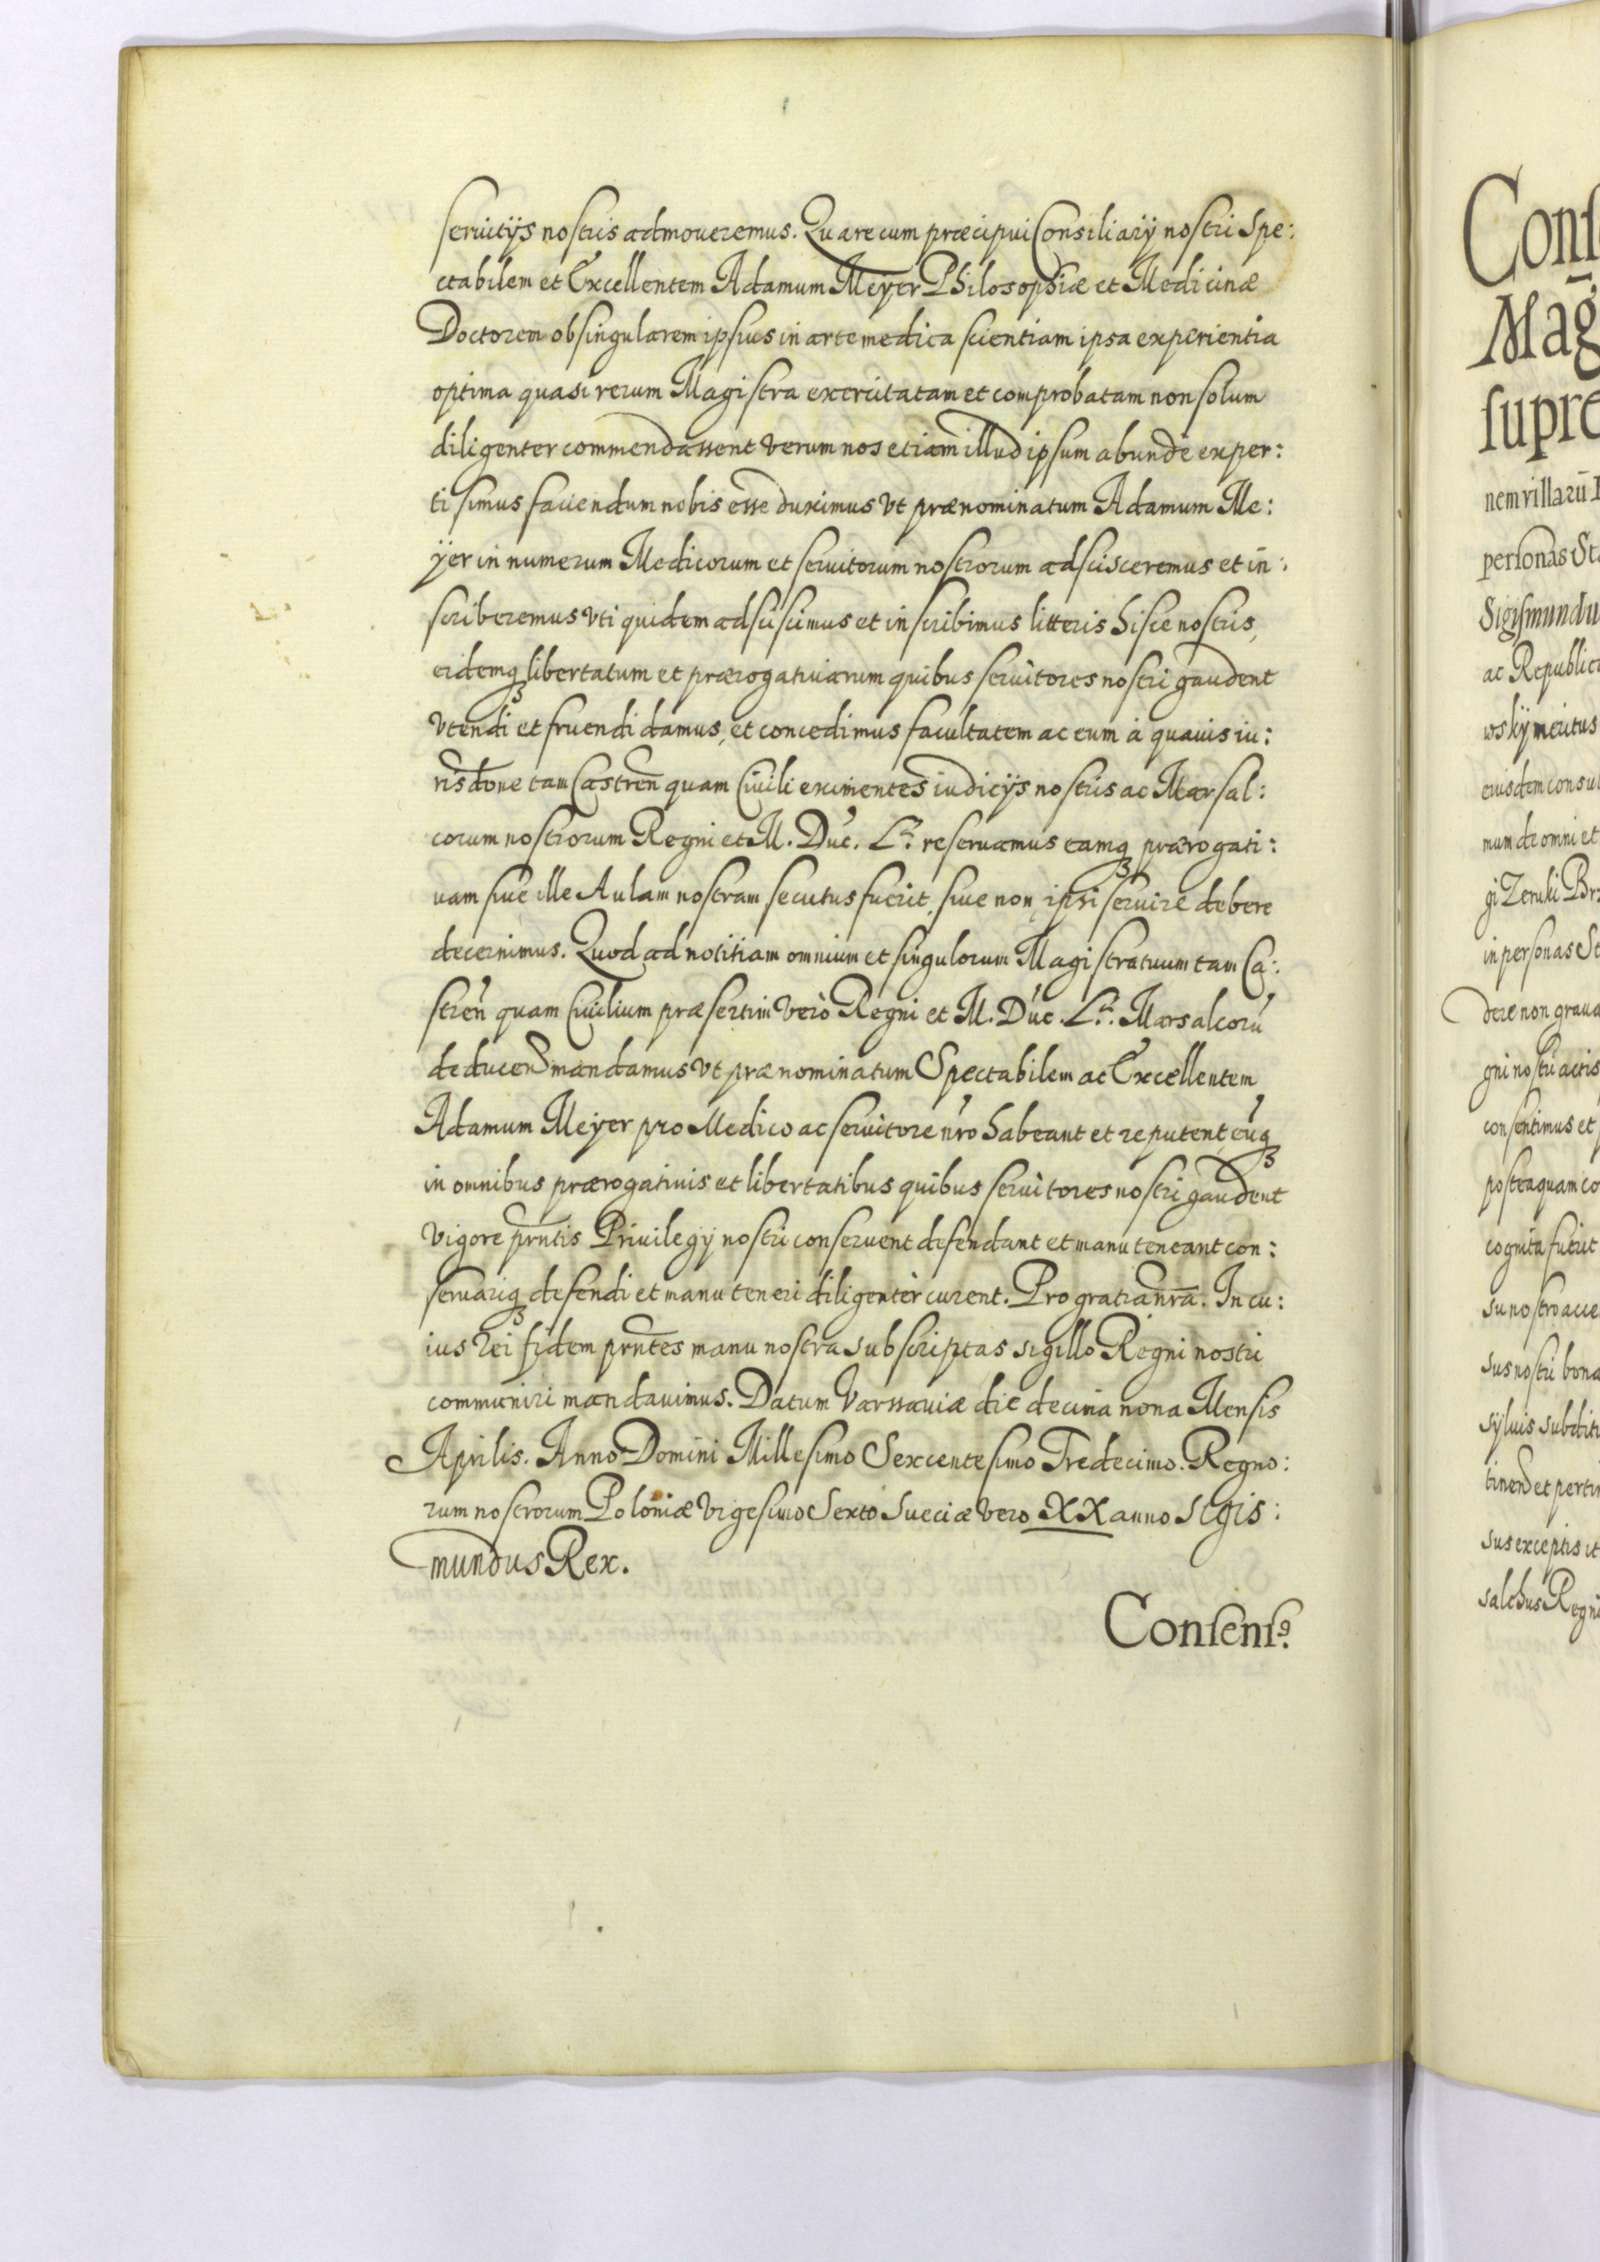 seruitijs nostris admoueremus. Quare cum præcipui Consiliarij nostri Spe:
ctabilem et Excellentem Adamum Meÿer Philosophiæ et Medicinæ
Doctorem ob singularem ipsius in arte medica scientiam ipsa experientia
optima quasi rerum Magistra exercitatam et comprobatam non solum
diligenter commendassent verum nos etiam illud ipsum abunde exper:
ti simus faciendum nobis esse duximus vt prænominatum Adamum Me:
ÿer in numerum Medicorum et seruitorum nostrorum adscisceremus et in:
scriberemus vti quidem adsciscimus et inscribimus litteris hisce nostris,
eidemq₃ libertatum et prærogatiuarum quibus seruitores nostri gaudent
vtendi et fruendi damus, et concedimus facultatem ac eum à quauis iu:
risdone tam Castren quam Ciuili eximentes iudicijs nostris ac Marsal:
corum nostrorum Regni et M. Duc. Lt. reseruamus eamq₃ prærogati:
uam siue ille Aulam nostram secutus fuerit, siue non ipsi seruire debere
decernimus. Quod ad notitiam omnium et singulorum Magistratuum tam Ca:
stren quam Ciuilium præsertim verò Regni et M. Duc. Lt. Marsalcorū
deducen mandamus vt prænominatum Spectabilem ac Excellentem
Adamum Meÿer pro Medico ac seruitore nro habeant et reputent, eūq₃
in omnibus prærogatiuis et libertatibus quibus seruitores nostri gaudent
vigore prntis Priuilegij nostri conseruent defendant et manuteneant con:
seruariq₃ defendi et manuteneri diligenter curent. Pro gratia nra. In cu:
ius rei fidem prntes manu nostra subscriptas sigillo Regni nostri
communiri mandauimus. Datum Varssauiæ die decima nona Mensis
Aprilis. Anno Domini Millesimo Sexcentesimo Tredecimo. Regno:
rum nostrorum Poloniæ vigesimo Sexto Sueciæ vero XX anno Sigis:
mundus Rex.
Consens9.
Mag
supre
nem villarū
personas
Sigismundu
ac Republic
wskÿ meritus
eiusdem consu
mum de omni et
in personas
dere non graua
gni nostri actis
consentimus et
posteaquam co
cognita fuerit
su nostro acce
sus nostri bona
sÿluis subditi
tinen et perti
sus exceptis
salchus Regni